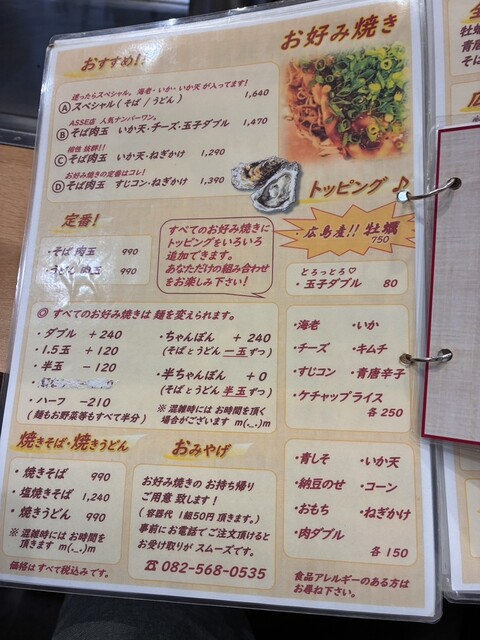 お好み焼き
おすすめ!!
迷ったらスペシャル。海老・いか・いか天 が入ってます!
Ⓐスペシャル(そば / うどん) 1,640
ASSE店 人気ナンバーワン。
Ⓑそば肉玉 いか天・チーズ・玉子ダブル 1,470
相性 抜群!!
Ⓒそば肉玉 いか天・ねぎかけ 1,290
お好み焼きの定番はコレ!
Ⓓそば肉玉 すじコン・ねぎかけ 1,390
定番!
・そば 肉玉 990
・うどん 肉玉 990
すべてのお好み焼きに
トッピングをいろいろ
追加できます。
あなただけの組み合わせ
をお楽しみ下さい!
トッピング♪
・広島産!! 牡蠣
750
とろっとろ♡
・玉子ダブル 80
◎ すべてのお好み焼きは 麺を変えられます。
・ダブル +240
・1.5玉 +120
・半玉 -120
・ハーフ -210
(麺もお野菜等もすべて半分)
・ちゃんぽん +240
(そばとうどん 一玉ずつ)
・半ちゃんぽん +0
(そばとうどん 半玉ずつ)
※ 混雑時には お時間を頂く
場合がございます m(._.)m
・海老 ・いか
・チーズ ・キムチ
・すじコン ・青唐辛子
・ケチャップライス
各250
焼きそば・焼きうどん
・焼きそば 990
・塩焼きそば 1,240
・焼きうどん 990
※ 混雑時には お時間を
頂きます m(._.)m
価格は すべて税込みです。
おみやげ
お好み焼きの お持ち帰り
ご用意 致します!
(容器代 1組50円 頂きます。)
事前にお電話でご注文頂けると
お受け取りが スムーズです。
☎ 082-568-0535
・青しそ ・いか天
・納豆のせ ・コーン
・おもち ・ねぎかけ
・肉ダブル
各150
食品アレルギーのある方は
お尋ね下さい。